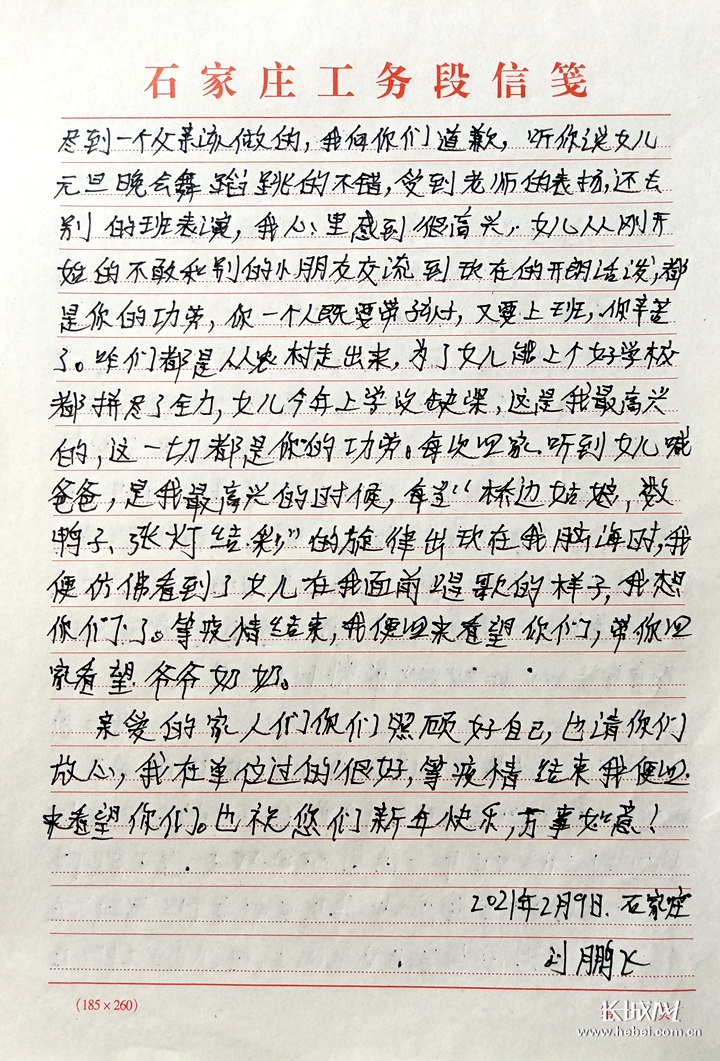 石家庄工务段信笺
尽到一个父亲该做的，我向你们道歉，听你说女儿
元旦晚会舞蹈跳的不错，受到老师的表扬，还去
别的班表演，我心里感到很高兴，女儿从刚开
始的不敢和别的小朋友交流到现在的开朗活泼，都
是你的功劳，你一个人既要带孩子，又要上班，你辛苦
了。咱们都是从农村走出来，为了女儿能上个好学校
都拼尽了全力，女儿今年上学没缺课，这是我最高兴
的，这一切都是你的功劳。每次回家听到女儿喊
爸爸，是我最高兴的时候，每当“桥边姑娘，数
鸭子、张灯结彩”的旋律出现在我脑海时，我
便仿佛看到了女儿在我面前唱歌的样子，我想
你们了。等疫情结束，我便回来看望你们，带你回
家看望爷爷奶奶。
亲爱的家人们你们照顾好自己，也请你们
放心，我在单位过的很好，等疫情结束我便回
来看望你们。也祝您们新年快乐，万事如意！
2021年2月9日.石家庄
刘鹏飞
(185×260)
第 页
长城网
www.hebei.com.cn